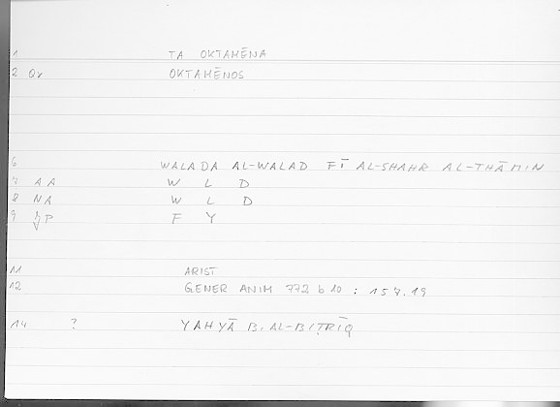 1 TA OKTAMĒNA
2 Qv OKTAMĒNOS
6 WALADA AL-WALAD FĪ AL-SHAHR AL-THĀMIN
7 AA W L D
8 NA W L D
9 P F Y
11 ARIST
12 GENER ANIM 772 b 10 : 157.19
14 ? YAHYĀ B. AL-BIṬRĪQ